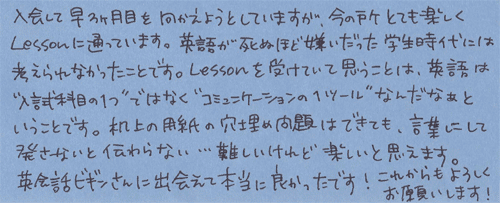 入会して早3ヶ月目を向かえようとしていますが、今の所とても楽しく
Lessonに通っています。英語が死ぬほど嫌いだった学生時代には
考えられなかったことです。Lessonを受けていて思うことは、英語は
"入試科目の1つ"ではなく"コミュニケーションの1ツール"なんだなぁと
いうことです。机上の用紙の穴埋め問題はできても、言葉にして
発さないと伝わらない…難しいけれど楽しいと思えます。
英会話ビギンさんに出会えて本当に良かったです！これからもよろしく
お願いします！